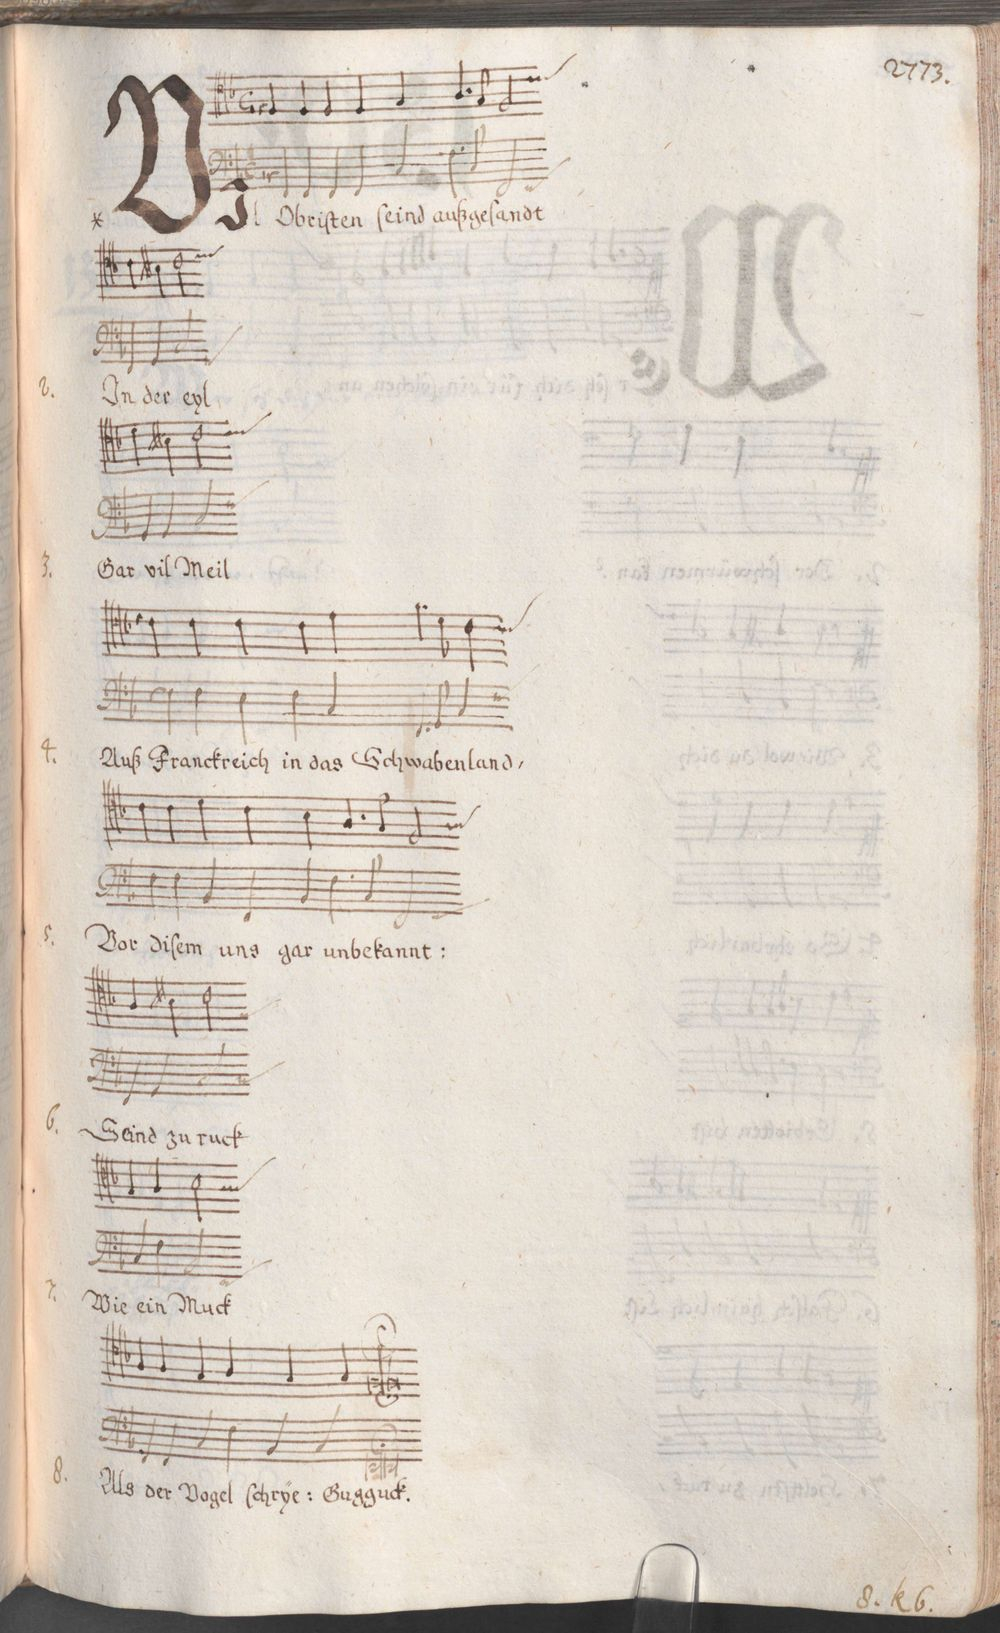 2773.
* Vil Obristen seind außgesandt
2. In der eyl
3. Gar vil Meil
4. Auß Franckreich in das Schwabenland,
5. Vor disem uns gar unbekannt:
6. Seind zu ruck
7. Wie ein Muck
8. Als der Vogel schrÿe: Gugguck.
8. k 6.